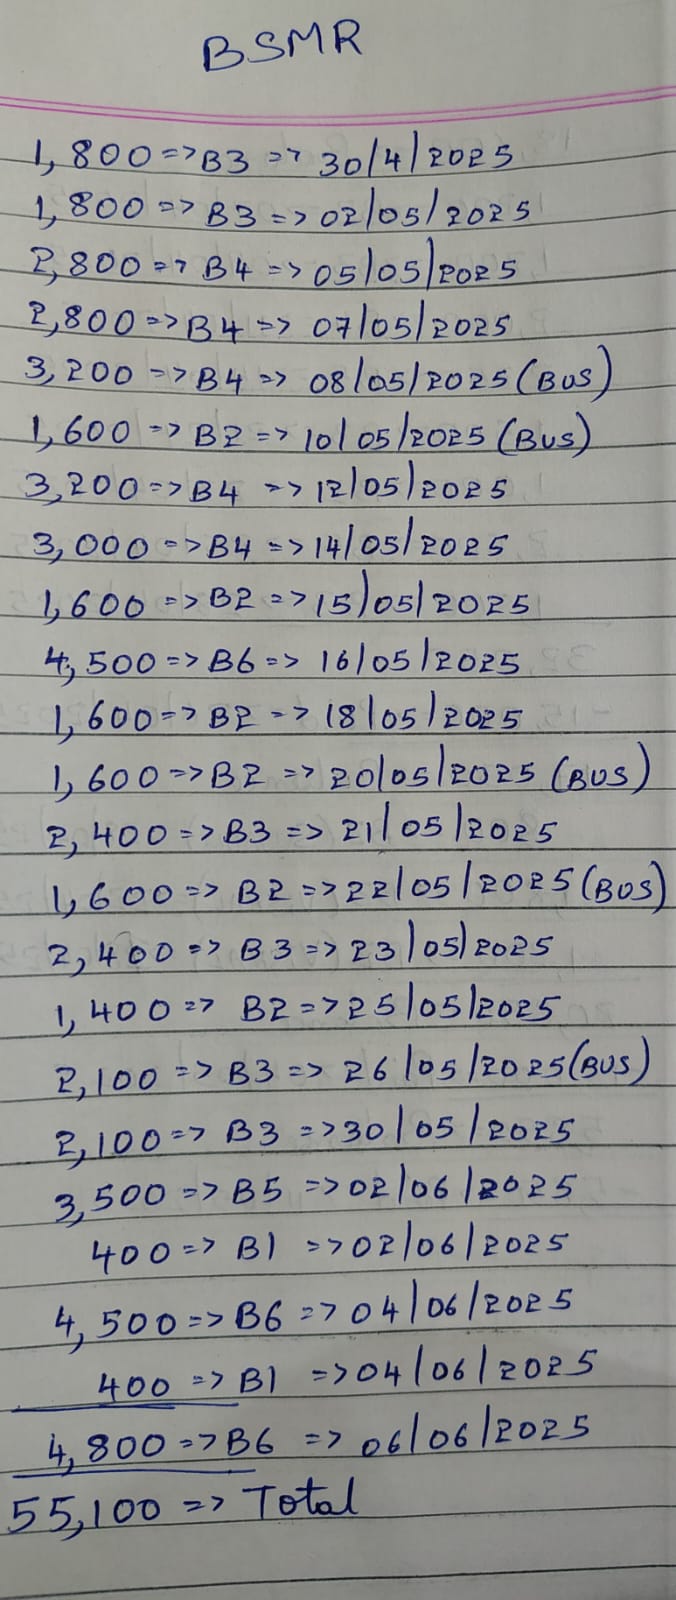 BSMR
1,800 => B3 => 30/4/2025
1,800 => B3 => 02/05/2025
2,800 => B4 => 05/05/2025
2,800 => B4 => 07/05/2025
3,200 => B4 => 08/05/2025 (BUS)
1,600 => B2 => 10/05/2025 (BUS)
3,200 => B4 => 12/05/2025
3,000 => B4 => 14/05/2025
1,600 => B2 => 15/05/2025
4,500 => B6 => 16/05/2025
1,600 => B2 => 18/05/2025
1,600 => B2 => 20/05/2025 (BUS)
2,400 => B3 => 21/05/2025
1,600 => B2 => 22/05/2025 (BUS)
2,400 => B3 => 23/05/2025
1,400 => B2 => 25/05/2025
2,100 => B3 => 26/05/2025 (BUS)
2,100 => B3 => 30/05/2025
3,500 => B5 => 02/06/2025
400 => B1 => 02/06/2025
4,500 => B6 => 04/06/2025
400 => B1 => 04/06/2025
4,800 => B6 => 06/06/2025
55,100 => Total